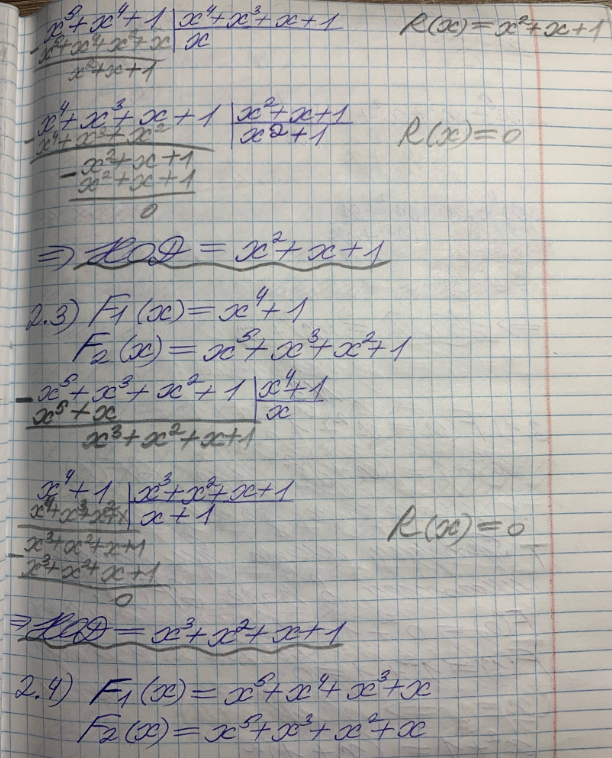 x⁵+x⁴+1 | x⁴+x³+x+1 R(x)=x²+x+1
x⁵+x⁴+x²+x | x
x²+x+1
x⁴+x³+x+1 | x²+x+1
x⁴+x³+x² | x²+1 R(x)=0
- x²+x+1
x²+x+1
0
=> НОД = x²+x+1
2.3) F₁(x)=x⁴+1
F₂(x)=x⁵+x³+x²+1
- x⁵+x³+x²+1 | x⁴+1
x⁵+x | x
x³+x²+x+1
x⁴+1 | x³+x²+x+1
x⁴+x³+x²+x | x+1 R(x)=0
- x³+x²+x+1
x³+x²+x+1
0
=> НОД = x³+x²+x+1
2.4) F₁(x)=x⁵+x⁴+x³+x
F₂(x)=x⁵+x³+x²+x